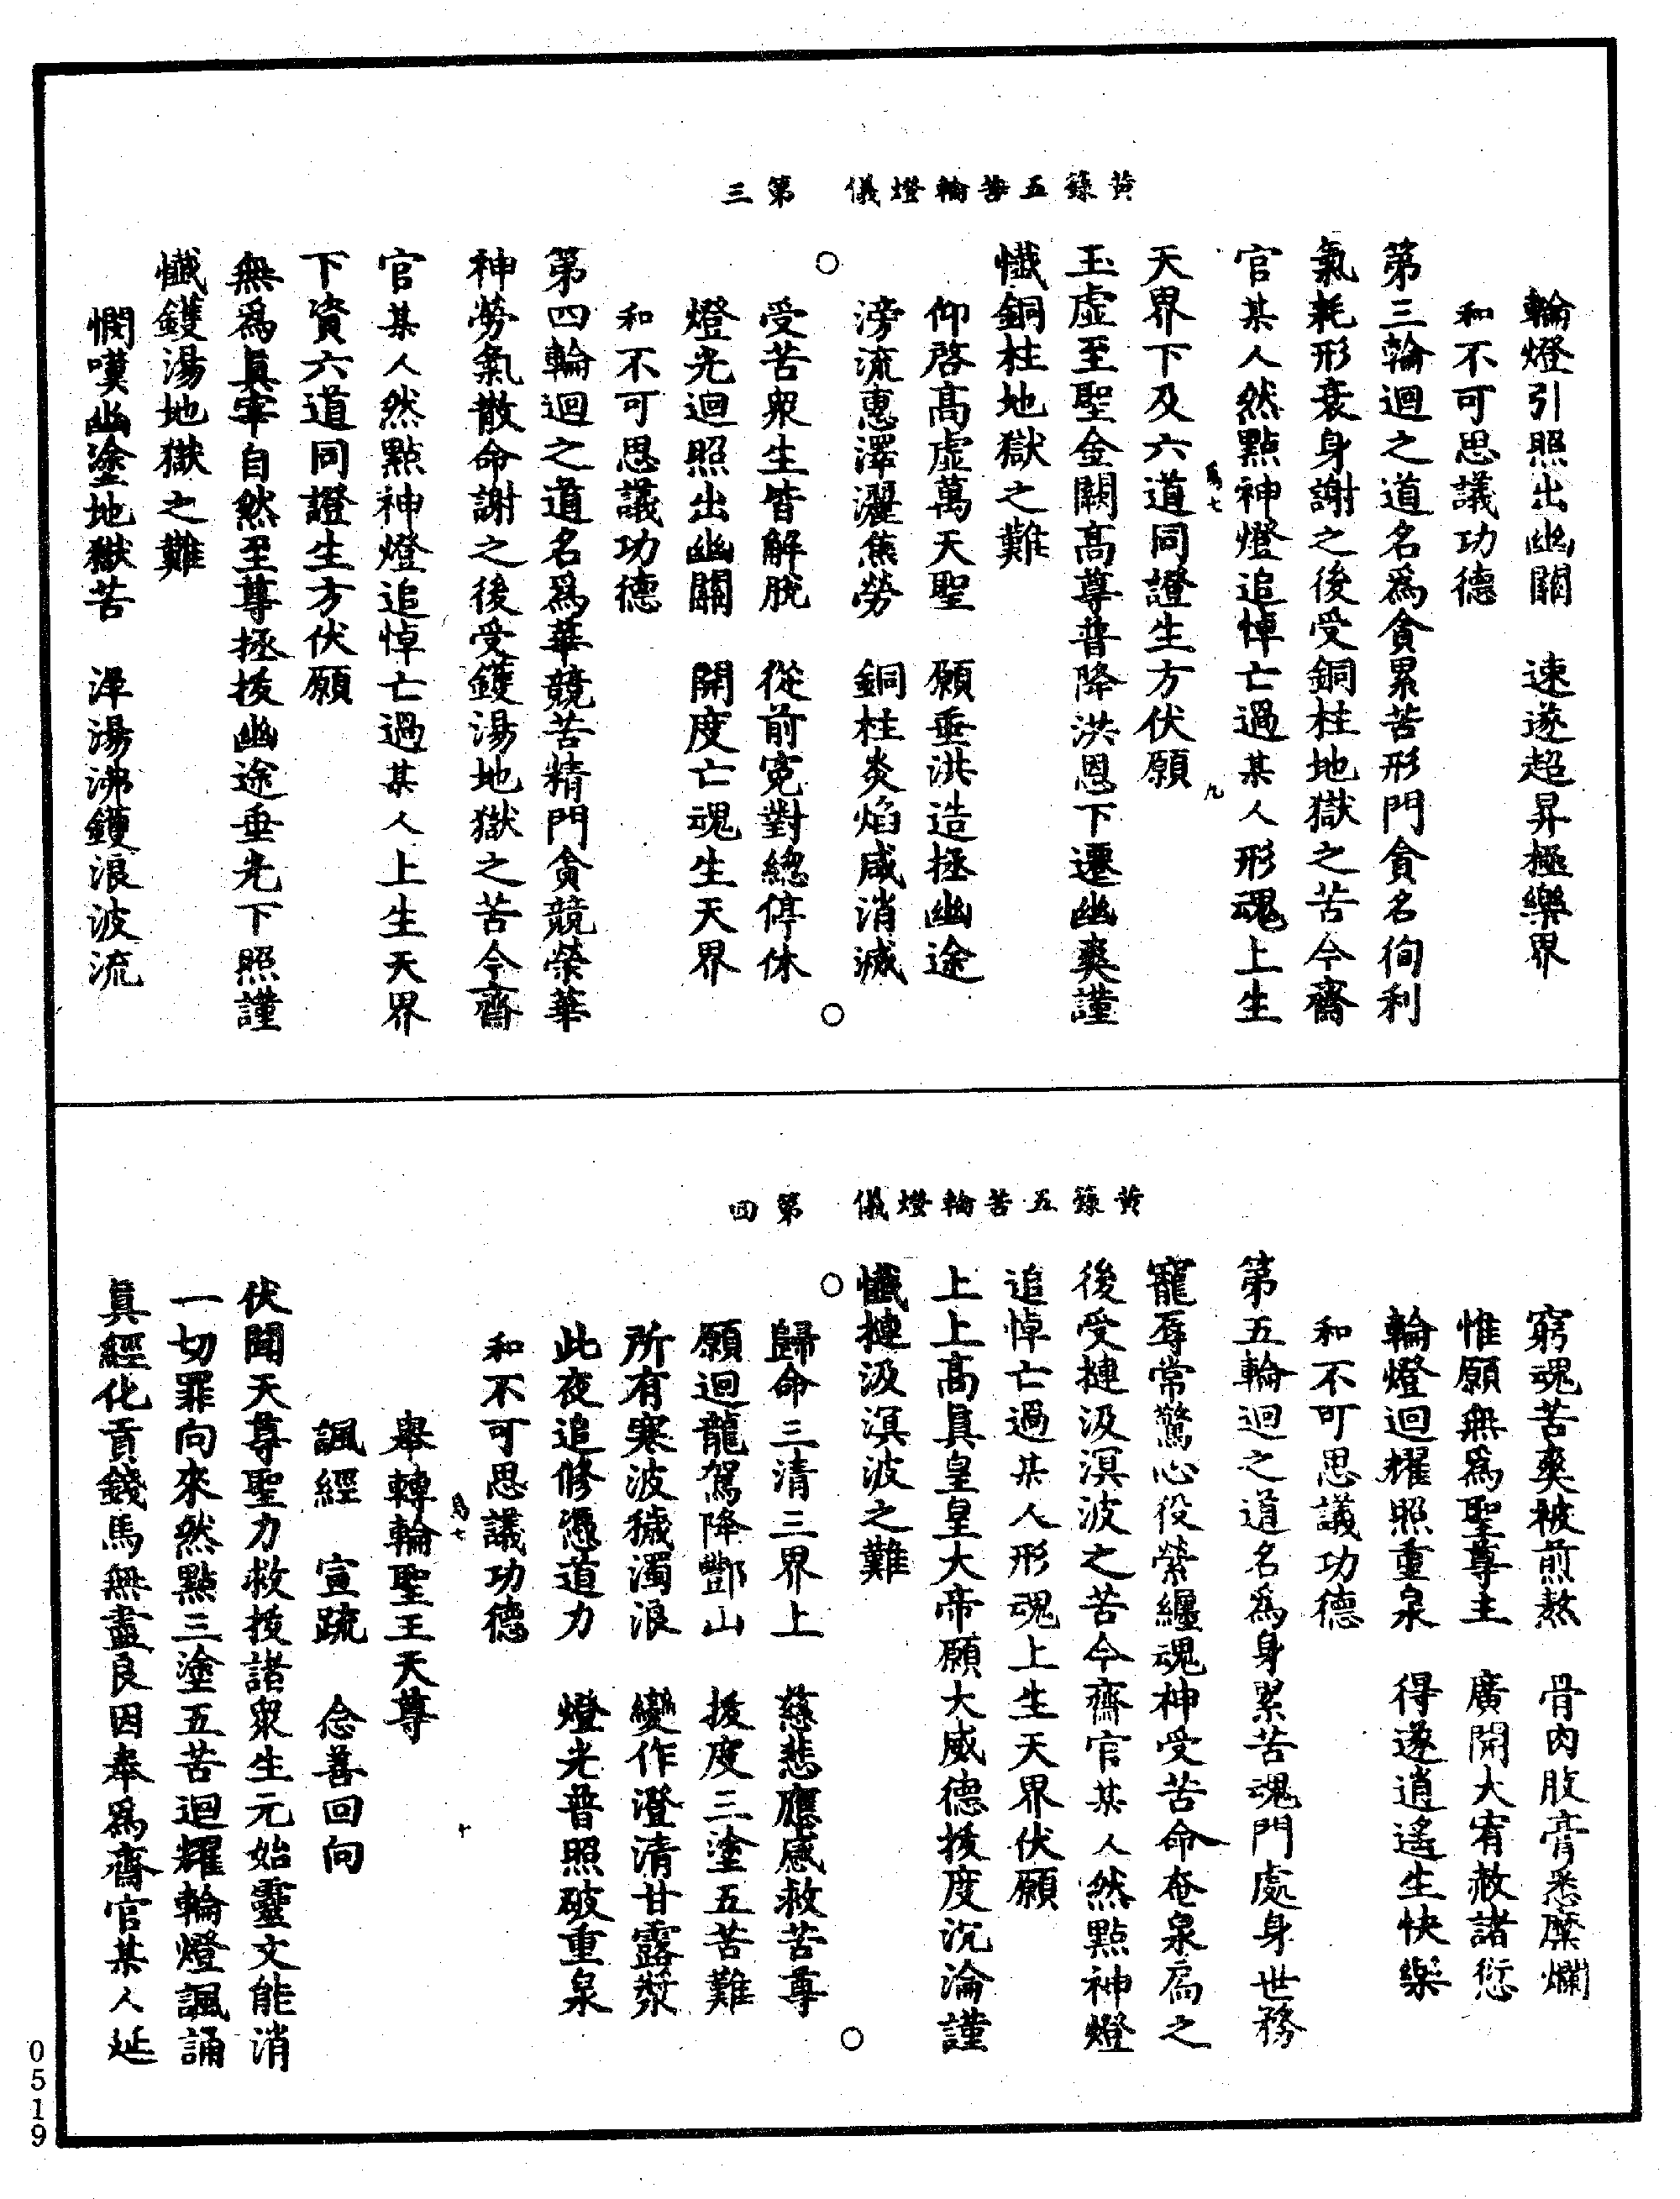 黃籙五苦輪燈儀　第三
輪燈引照出幽關　速遂超昇極樂界
和不可思議功德
第三輪迴之道名爲貪累苦形門貪名徇利
氣耗形衰身謝之後受銅柱地獄之苦今齋
官某人然點神燈追悼亡過某人形魂上生
天界下及六道同證生方伏願
爲七　九
玉虛至聖金闕高尊普降洪恩下遷幽爽謹
懺銅柱地獄之難
仰啓高虛萬天聖　願垂洪造拯幽途
滂流惠澤濯焦勞　銅柱炎焰咸消滅
受苦衆生皆解脫　從前寃對總停休
燈光迴照出幽關　開度亡魂生天界
和不可思議功德
第四輪迴之道名爲華競苦精門貪競榮華
神勞氣散命謝之後受鑊湯地獄之苦今齋
官某人然點神燈追悼亡過某人上生天界
下資六道同證生方伏願
無爲眞宰自然至尊拯拔幽途垂光下照謹
懺鑊湯地獄之難
憫嘆幽塗地獄苦　渾湯沸鑊浪波流
黃籙五苦輪燈儀　第四
窮魂苦爽被煎熬　骨肉肢膏悉糜爛
惟願無爲聖尊主　廣開大宥赦諸愆
輪燈迴耀照重泉　得遂逍遙生快樂
和不可思議功德
第五輪迴之道名爲身累苦魂門處身世務
寵辱常驚心役縈纏魂神受苦命奄泉扃之
後受摙汲溟波之苦今齋官某人然點神燈
追悼亡過某人形魂上生天界伏願
上上高眞皇皇大帝願大威德拔度沉淪謹
懺摙汲溟波之難
歸命三清三界上　慈悲應感救苦尊
願迴龍駕降酆山　拔度三塗五苦難
所有寒波穢濁浪　變作澄清甘露漿
此夜追修憑道力　燈光普照破重泉
和不可思議功德
爲七　十
舉轉輪聖王天尊
諷經　宣疏　念善回向
伏聞天尊聖力救拔諸衆生元始靈文能消
一切罪向來然點三塗五苦迴耀輪燈諷誦
眞經化貢錢馬無盡良因奉爲齋官某人延
0519